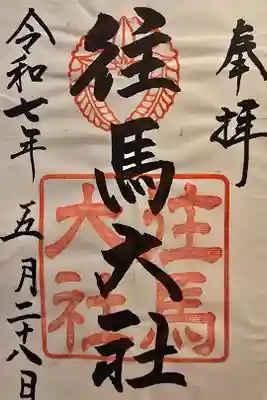 奉拝
往馬大社
往馬大社
令和七年 五月二十八日